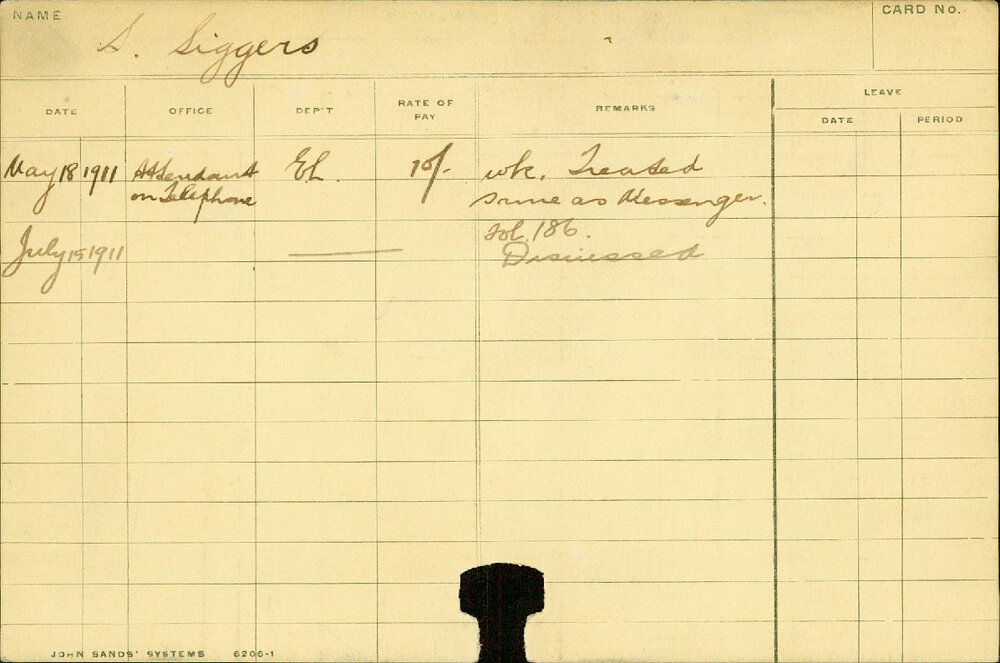 NAME
S. Siggers
CARD No.
DATE OFFICE DEP'T RATE OF PAY REMARKS LEAVE
DATE PERIOD
May 18 1911 Attendant El. 10/- wk. Treated
on Telephone same as Messenger.
fol. 186.
July 15 1911 Dismissed
JOHN SANDS' SYSTEMS 6206-1